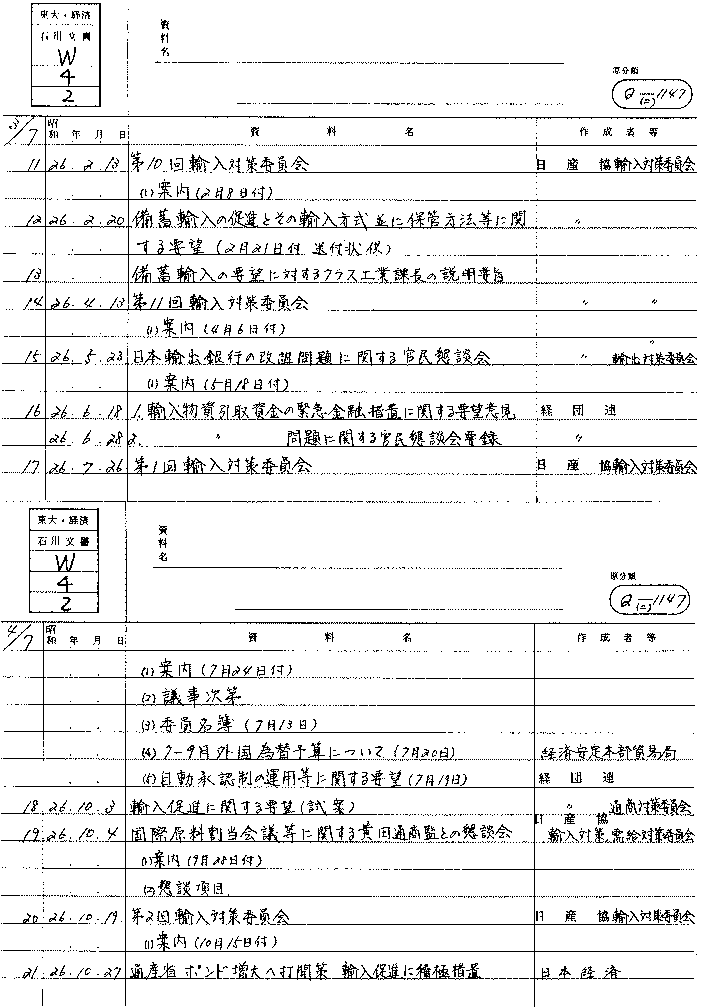 東大・経済
石川文書
W
4
2
資料名
原分類
Q (二) 1147
3/7 昭和 年 月 日 資 料 名 作 成 者 等
11 26. 2. 13 第10回輸入対策委員会 日 産 協 輸入対策委員会
(1) 案内 (2月8日付)
12 26. 2. 20 備蓄輸入の促進とその輸入方式並に保管方法等に関 〃
する要望 (2月21日付 送付状 仮)
13 備蓄輸入の要望に対するクラス工業課長の説明要旨
14 26. 4. 13 第11回輸入対策委員会 〃 〃
(1) 案内 (4月6日付)
15 26. 5. 23 日本輸出銀行の改組問題に関する官民懇談会 〃 輸出対策委員会
(1) 案内 (5月18日付)
16 26. 6. 18 1. 輸入物資引取資金の緊急金融措置に関する要望意見 経 団 連
26. 6. 28 2. 〃 問題に関する官民懇談会要録 〃
17 26. 7. 26 第1回輸入対策委員会 日 産 協 輸入対策委員会
東大・経済
石川文書
W
4
2
資料名
原分類
Q (二) 1147
4/7 昭和 年 月 日 資 料 名 作 成 者 等
(1) 案内 (7月24日付)
(2) 議事次第
(3) 委員名簿 (7月13日)
(4) 7-9月外国為替予算について (7月20日) 経済安定本部貿易局
(5) 自動承認制の運用等に関する要望 (7月19日) 経 団 連
18 26. 10. 3 輸入促進に関する要望 (試案) 〃 通商対策委員会
19 26. 10. 4 国際原料割当会議等に関する黄田通商監との懇談会 日 産 協 輸入対策, 需給対策委員会
(1) 案内 (9月28日付)
(2) 懇談項目
20 26. 10. 19 第2回輸入対策委員会 日 産 協 輸入対策委員会
(1) 案内 (10月15日付)
21 26. 10. 27 通産省 ポンド増大へ打開策 輸入促進に積極措置 日本経済